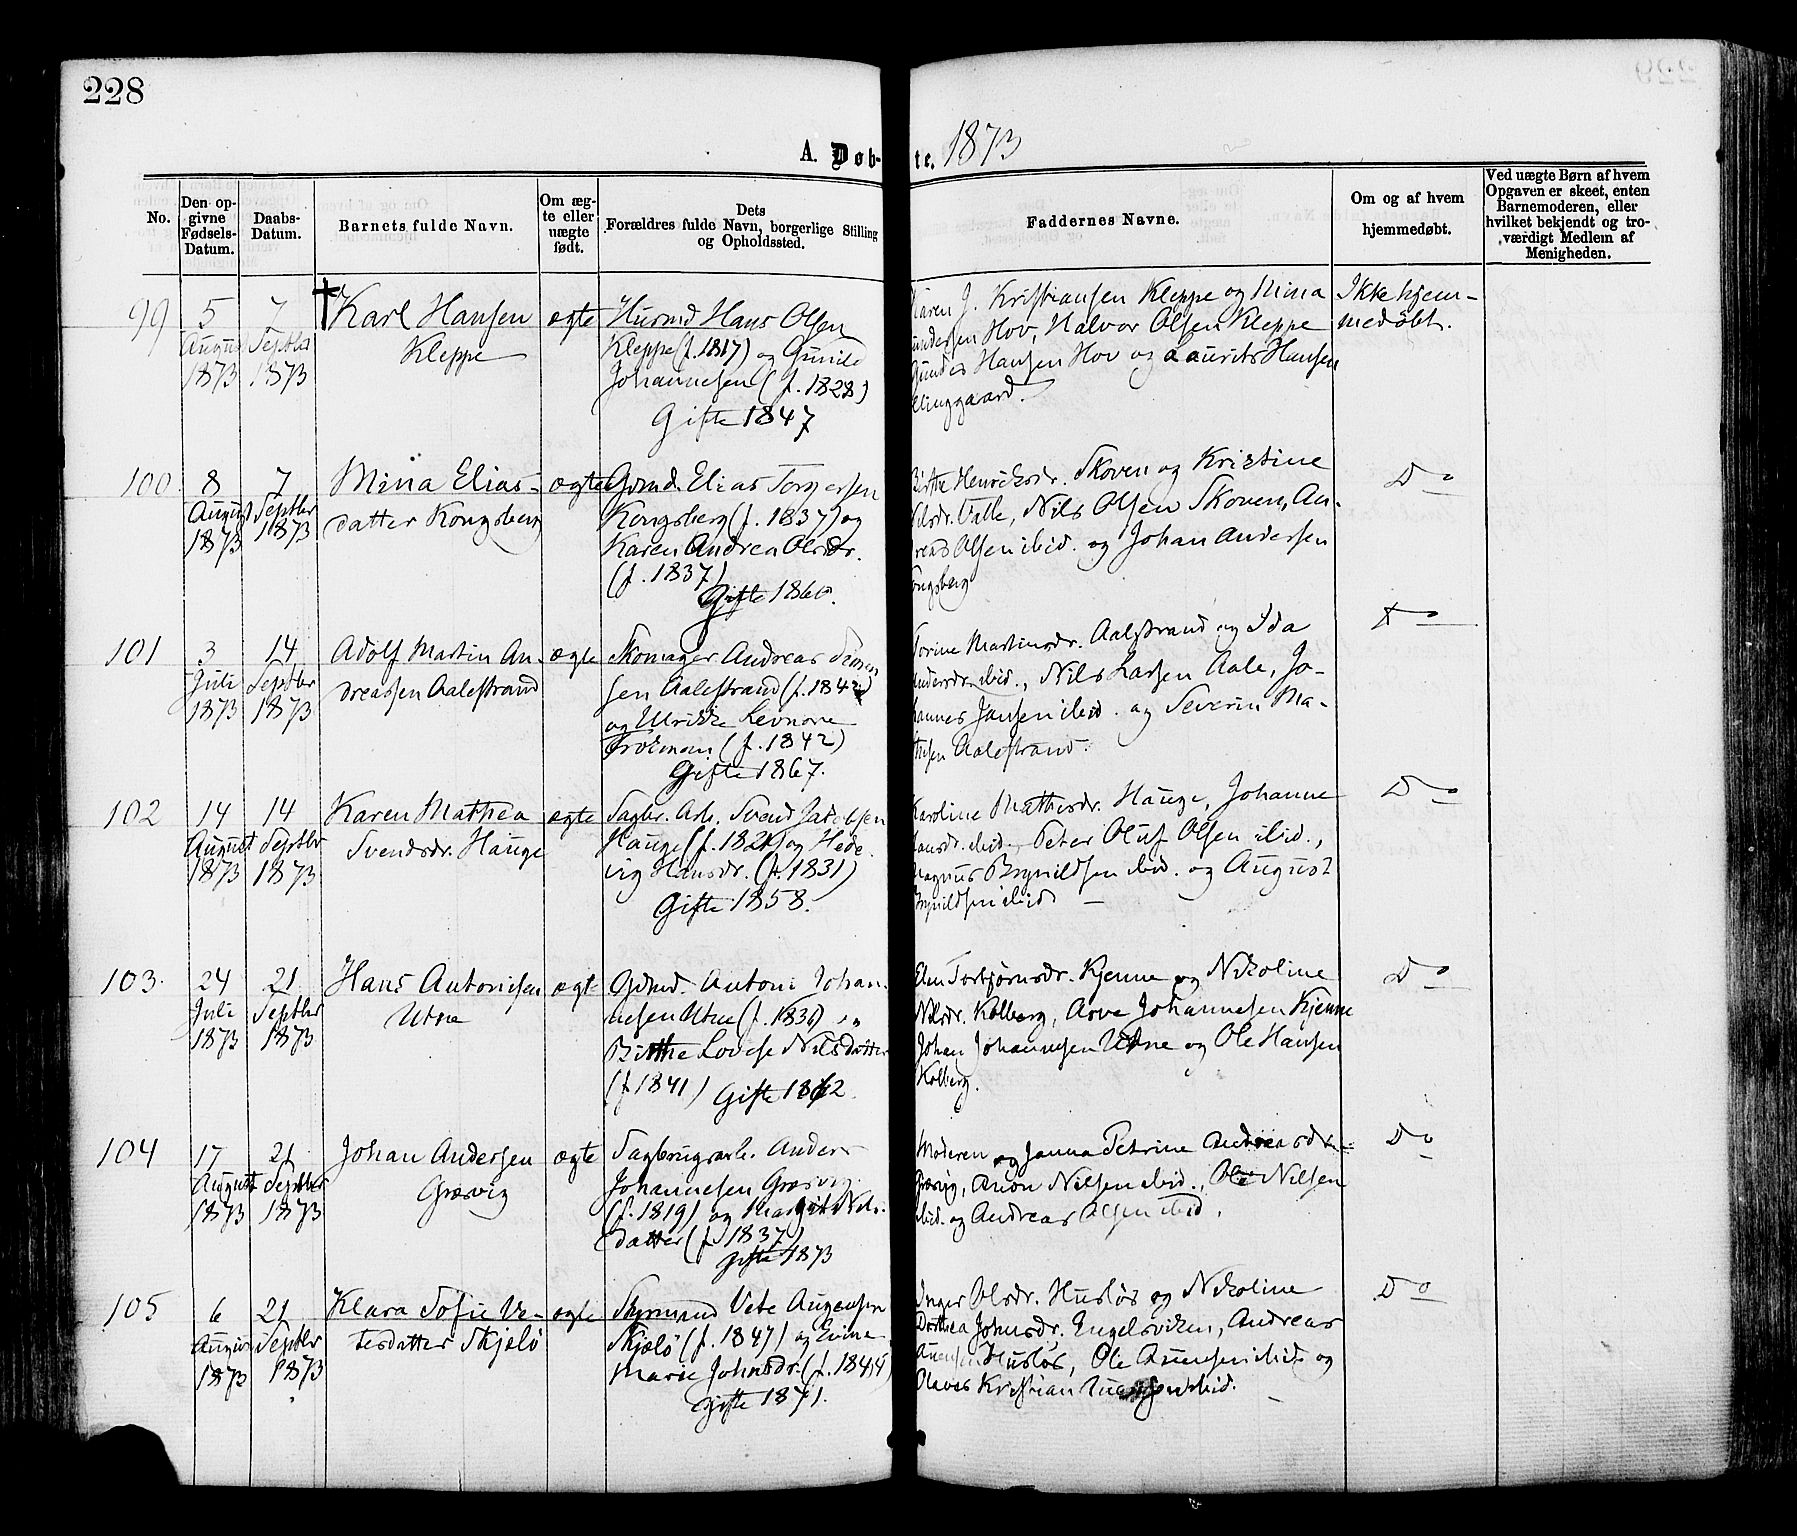 228
A. Døb-te. 1873
No.
Den op-
givne
Fødsels-
Datum.
Daabs-
Datum.
Barnets fulde Navn.
Om æg-
te eller
uægte
født.
Dets
Forældres fulde Navn, borgerlige Stilling
og Opholdssted.
Faddernes Navne.
Om og af hvem
hjemmedøbt.
Ved uægte Børn af hvem
Opgaven er skeet, enten
Barnemoderen, eller
hvilket bekjendt og tro-
værdigt Medlem af
Menigheden.
99
5
August
1873
7
Septbr
1873
Karl Hansen
Kleppe
ægte
Husmd Hans Olsen
Kleppe (f. 1817) og Gunild
Johannesen (f. 1828)
Gifte 1847
Karen J. Kristiansen Kleppe og Mina
Gundersen Hov, Halvor Olsen Kleppe
Hansen Hov og Laurits Hansen
Elinggaard.
Ikke hjem-
medøbt.
100.
8
August
1873
7
Septbr
1873
Mina Elias-
datter Kongsberg
ægte
Gdmd. Elias Torgersen
Kongsberg (f. 1837) og
Karen Andrea Olsdr.
(f. 1837)
Gifte 1860.
Birthe Henriksdr. Skoven og Kristine
Nilsdr. Valle, Nils Olsen Skoven, An-
dreas Olsen ibid. og Johan Andersen
Kongsberg
Do
101
3
Juli
1873
14
Septbr
1873
Adolf Martin An-
dreassen Aalestrand
ægte
Skomager Andreas
sen Aalestrand (f. 1842)
og Ulrikke Levnore
(f. 1842)
Gifte 1867.
Torine Martinsdr. Aalestrand og Ida
Andersdr. ibid., Nils Larsen Aale, Jo-
hannes Jansen ibid. og Severin Ma-
thisen Aalestrand.
Do
102
14
August
1873
14
Septbr
1873
Karen Mathea
Svendsdr. Hauge
ægte
Sagbr. Arb. Svend Jacobsen
Hauge (f. 1821) og Hede-
vig Hansdr. (f. 1831)
Gifte 1858.
Karoline Mathisdr. Hauge, Johanne
Hansdr. ibid., Peter Oluf Olsen ibid.,
Magnus Brynildsen ibid. og August
Brynildsen ibid
Do
103.
24
Juli
1873
21
Septbr
1873
Hans Antonisen
Utne
ægte
Gdmd. Antoni Johan-
nesen Utne (f. 1836) "
Birthe Lovise Nilsdatter
(f 1841) Gifte 1862.
Elen Torbjørnsdr. Kjenne og Nikoline
Nilsdr. Kolberg, Arve Johannesen Kjenne
Johan Johannesen Utne og Ole Hansen
Kolberg.
Do
104
17
August
1873
21
Septbr
1873
Johan Andersen
Græsvig
ægte
Sagbrugsarb. Anders
Johannesen Græsvig
(f. 1819) og Margit Nils-
datter (f 1837)
Gifte 1873
Moderen og Janna Petrine Andreasdr.
Græsvig, Anon Nilsen ibid., Ole Nilsen
ibid. og Andreas Olsen ibid.
Do
105
6
August
1873
21
Septbr
1873
Klara Sofie Ve-
tesdatter Skjelø
ægte
Styrmand Vete Augensen
Skjælø (f. 1847) og
Marie Johnsdr. (f. 1844)
Gifte 1871.
Inger Olsdr. Husløs og Nikoline
Dorthea Johnsdr. Engelsviken, Andreas
Auensen Husløs, Ole Auensen ibid og
Olaves Kristian ibid.
Do